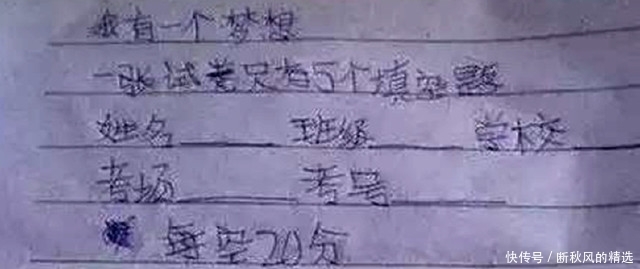 我有一个梦想
一张试卷只有5个填空题
姓名____ 班级____ 学校____
考场____ 考号____
每空20分
快传号/断秋风的精选